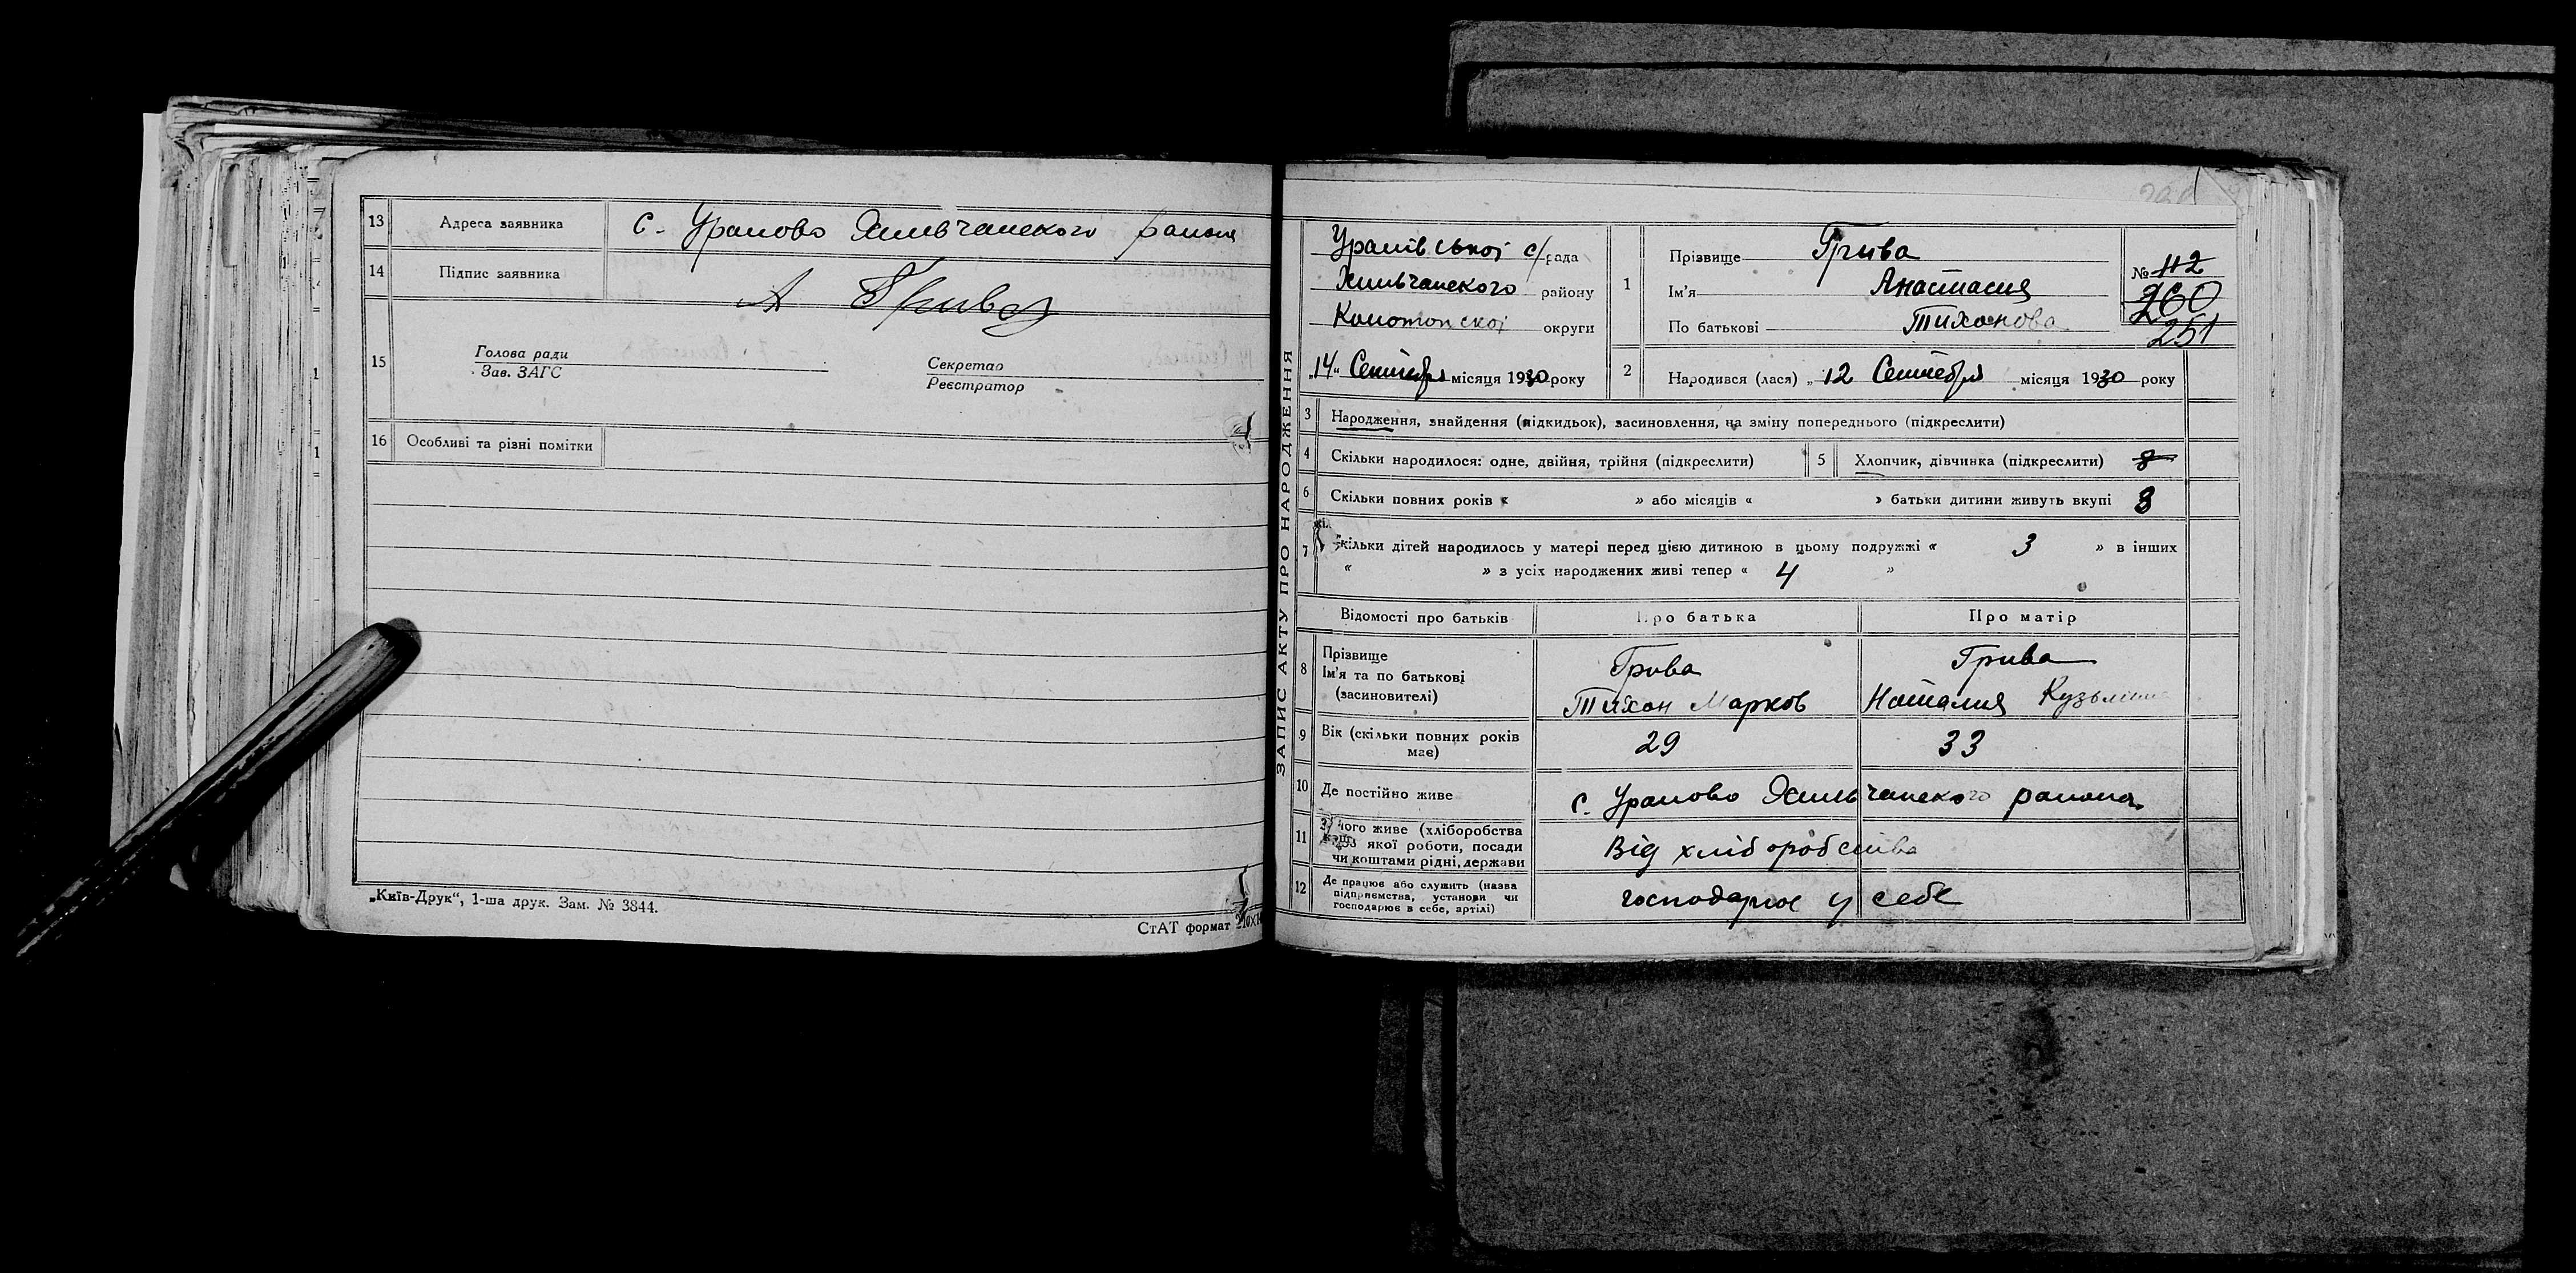 13 Адреса заявника С. Ураново Хильчанского района
14 Підпис заявника А Грива
15 Голова ради
Зав. ЗАГС
Секретар
Реєстратор
16 Особливі та різні помітки
„Київ-Друк“, 1-ша друк. Зам. № 3844.
СтАТ формат
ЗАПИС АКТУ ПРО НАРОДЖЕННЯ
с/рада
Хильчанского району
Конотопскої округи
„14“ Сентебря місяця 1930 року
1 Прізвище Грива
Ім'я Анастасия
По батькові Тихонова
№ 112
260
251
2 Народився (лася) „12 Сентебря місяця 1930 року
3 Народження, знайдення (підкидьок), засиновлення, на зміну попереднього (підкреслити)
4 Скільки народилося: одне, двійня, трійня (підкреслити) 5 Хлопчик, дівчинка (підкреслити) 8
6 Скільки повних років « » або місяців « » батьки дитини живуть вкупі 8
7 Скільки дітей народилось у матері перед цією дитиною в цьому подружжі « 3 » в інших
« » з усіх народжених живі тепер « 4 »
Відомості про батьків Про батька Про матір
8 Прізвище
Ім'я та по батькові
(засиновителі)
Грива
Тихон Марков
Грива
Наталия
9 Вік (скільки повних років має) 29 33
10 Де постійно живе с. Ураново Хильчанского района
11 З чого живе (хліборобства
якої роботи, посади
чи коштами рідні, держави
Від хліборобства
12 Де працює або служить (назва
підприємства, установи чи
господарює в себе, артілі)
господарює у себе